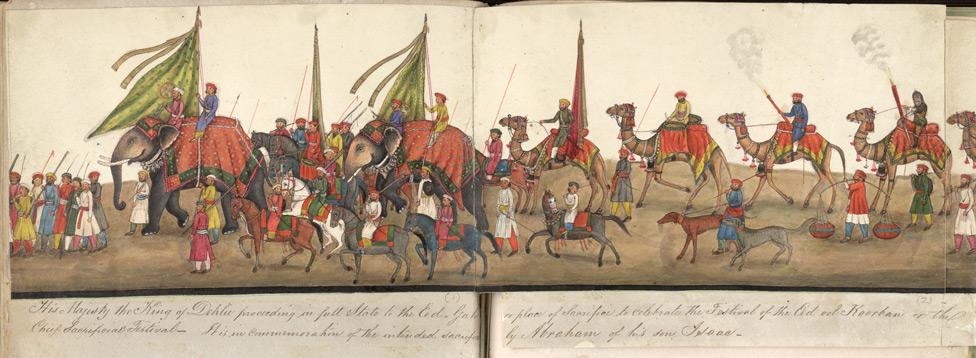 (1) (2)
His Majesty the King of Dehlie proceeding in full State to the Eed-Gah or place of Sacrifice to celebrate the Festival of the Eed ool Koorban or the
Chief Sacrificial Festival— It is in commemoration of the intended Sacrifice by Abraham of his son Isaac—